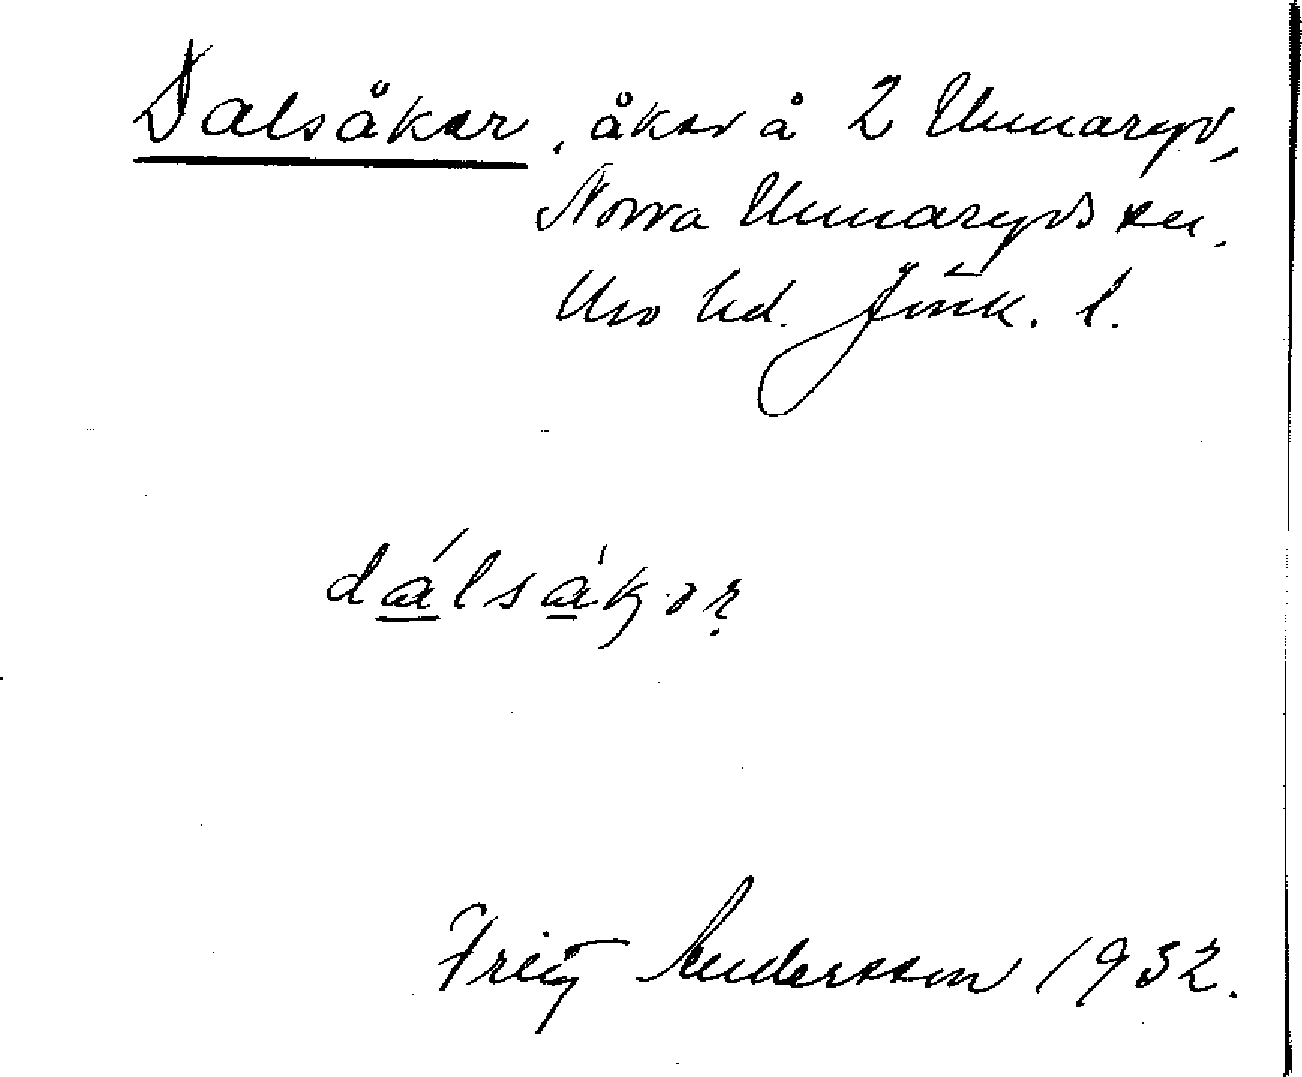 Dalsåker, åker å 2 Unnaryd,
Norra Unnaryds sn.
Mo hd. Jönk. l.
dálsákor
Fritz Andersson 1932.